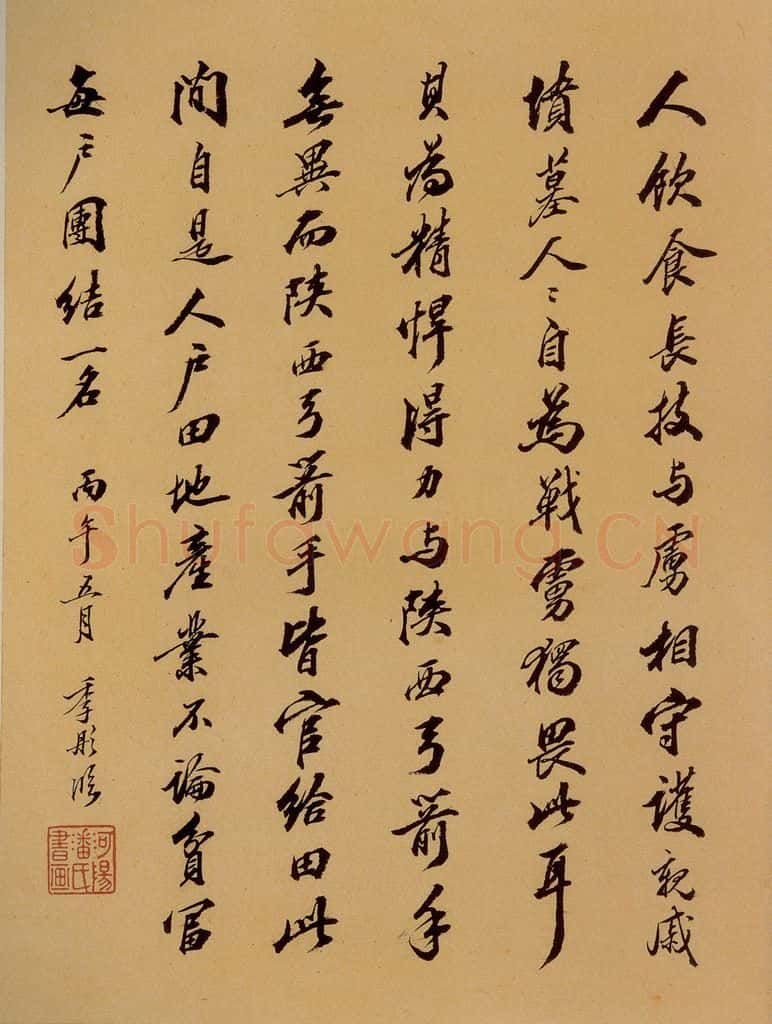 人飲食長技与虜相守護親戚
墳墓人〻自為戰虜獨畏此耳
其為精悍得力与陝西弓箭手
無異而陝西弓箭手皆官給田此
間自是人户田地產業不論貧富
每户團結一名 丙午五月 季彤臨
河陽潘氏書画
Shufawang.CN